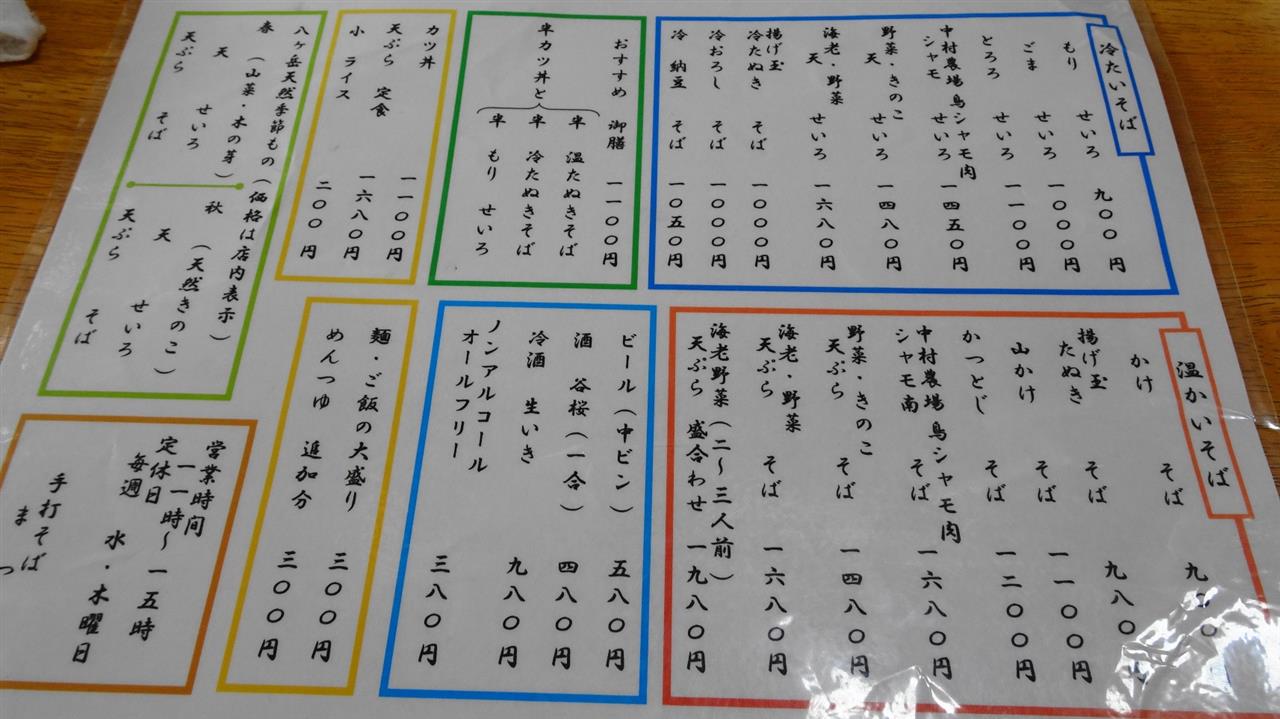 冷たいそば
もり せいろ 九〇〇円
ごま せいろ 一〇〇〇円
とろろ せいろ 一一〇〇円
中村農場 鳥シャモ肉
シャモ せいろ 一四五〇円
野菜・きのこ
天 せいろ 一四八〇円
海老・野菜
天 せいろ 一六八〇円
揚げ玉
冷たぬき そば 一〇〇〇円
冷おろし そば 一〇〇〇円
冷 納豆 そば 一〇五〇円
おすすめ 御膳 一一〇〇円
半カツ丼と
半 温たぬきそば
半 冷たぬきそば
半 もり せいろ
カツ丼 一一〇〇円
天ぷら 定食 一六八〇円
小 ライス 二〇〇円
八ヶ岳天然季節もの(価格は店内表示)
春 (山菜・木の芽)
天 せいろ
天ぷら そば
秋 (天然きのこ)
天 せいろ
天ぷら そば
温かいそば
かけ そば 九〇〇
揚げ玉
たぬき そば 九八〇
山かけ そば 一一〇〇円
かつとじ そば 一二〇〇円
中村農場 鳥シャモ肉
シャモ南 そば 一六八〇円
野菜・きのこ
天ぷら そば 一四八〇円
海老・野菜
天ぷら そば 一六八〇円
海老野菜(二〜三人前)
天ぷら 盛合わせ 一九八〇円
ビール(中ビン) 五八〇円
酒 谷桜(一合) 四八〇円
冷酒 生いき 九八〇円
ノンアルコール
オールフリー 三八〇円
麺・ご飯の大盛り 三〇〇円
めんつゆ 追加分 三〇〇円
営業時間
一一時〜一五時
定休日
毎週 水・木曜日
手打そば